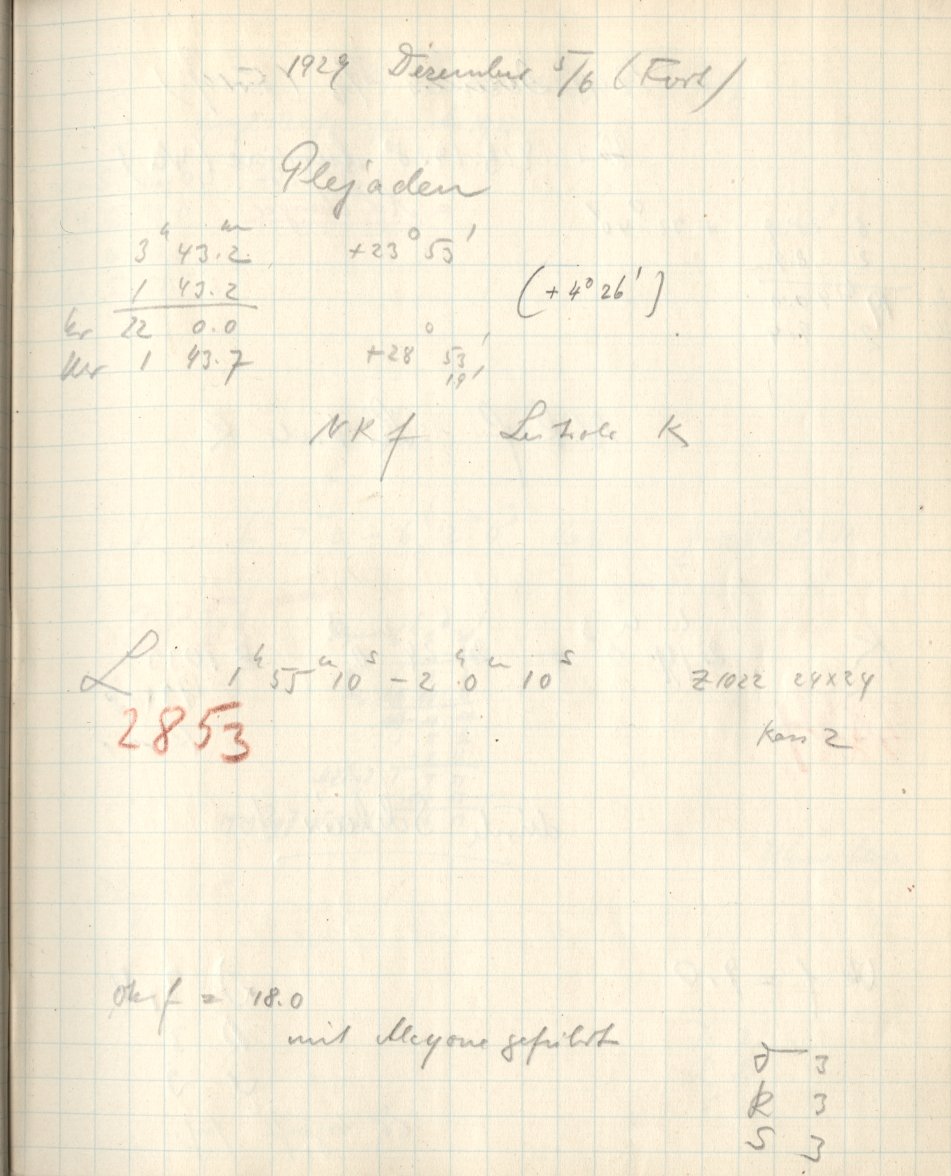 1929 Dezember 5/6 (Forts)
Plejaden
3h 43.m2 +23° 53'
1 43.2 (+4° 26')
Kr 22 0.0
Uhr 1 43.7 +28° 53'
19'
NKf K
L 1h 55m 10s – 2h 0m 10s Z1022 24x24
2853 Kass 2
Ok f = 18.0
mit Alcyone geführt
J 3
R 3
S 3